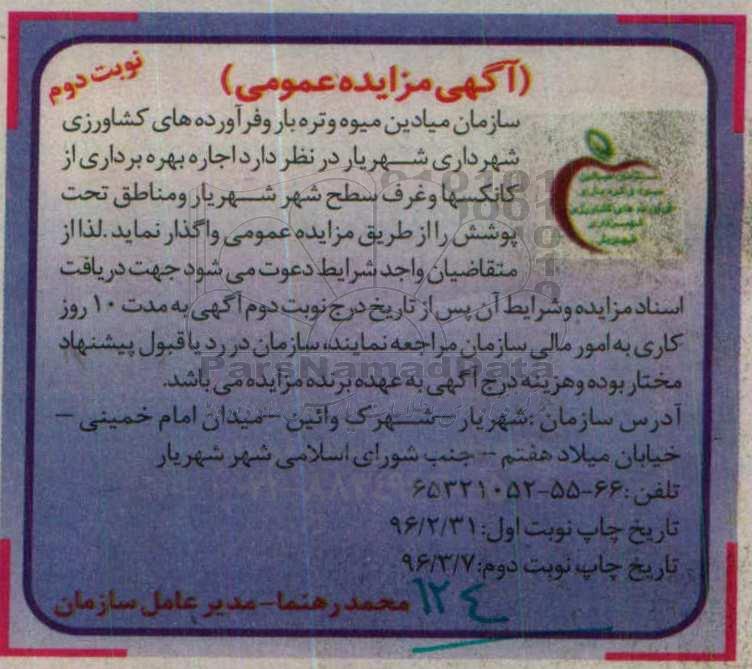 نوبت دوم
(آگهی مزایده عمومی)
سازمان میادین میوه وتره بار وفرآورده های کشاورزی
شهرداری شهریار در نظر دارد اجاره بهره برداری از
کانکسها وغرف سطح شهر شهریار ومناطق تحت
پوشش را از طریق مزایده عمومی واگذار نماید.لذا از
متقاضیان واجد شرایط دعوت می شود جهت دریافت
اسناد مزایده وشرایط آن پس از تاریخ درج نوبت دوم آگهی به مدت ۱۰ روز
کاری به امور مالی سازمان مراجعه نمایند، سازمان در رد یا قبول پیشنهاد
مختار بوده وهزینه درج آگهی به عهده برنده مزایده می باشد.
ParsNamadData
آدرس سازمان :شهریار –شهرک وائین –میدان امام خمینی –
خیابان میلاد هفتم – جنب شورای اسلامی شهر شهریار
تلفن:۶۶-۵۵-۶۵۳۲۱۰۵۲
تاریخ چاپ نوبت اول:۹۶/۲/۳۱
تاریخ چاپ نوبت دوم:۹۶/۳/۷
محمد رهنما-مدیر عامل سازمان
۱۲۴